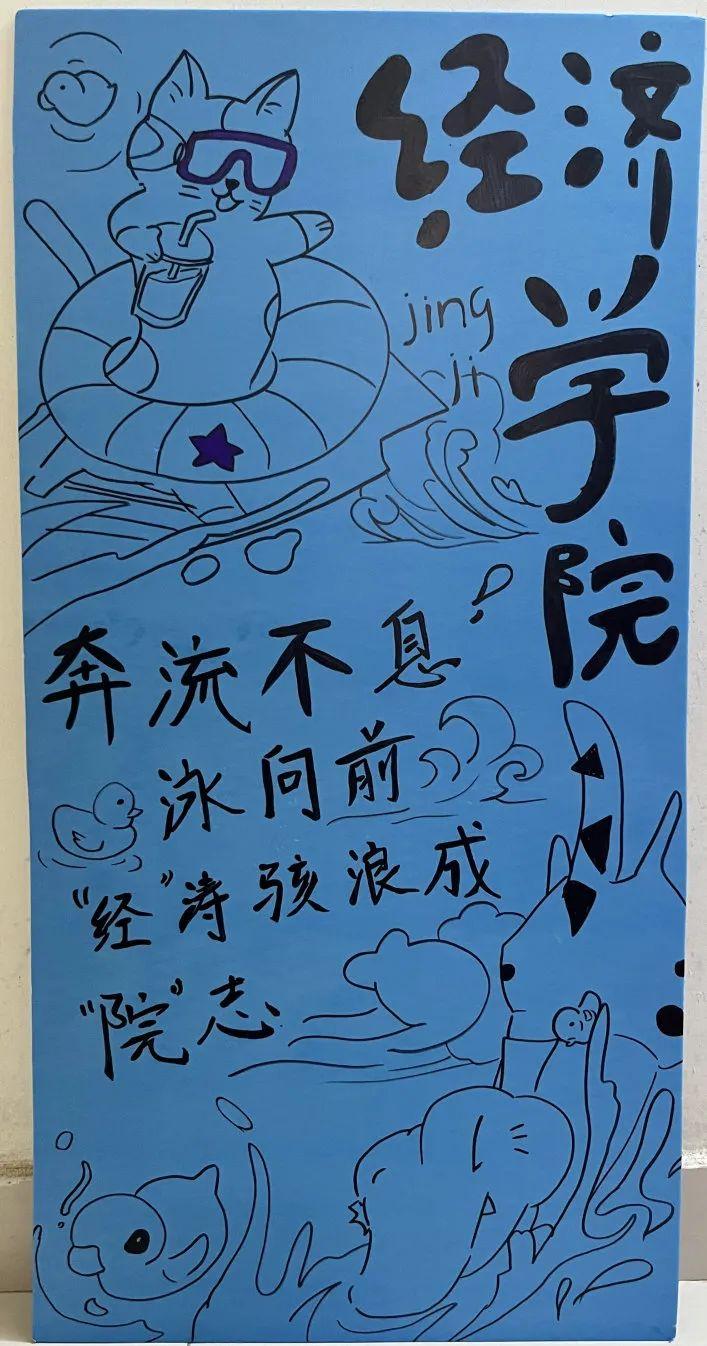 经济
学
院
jing
ji
奔流不息!
泳向前
“经”涛骇浪成
“院”志